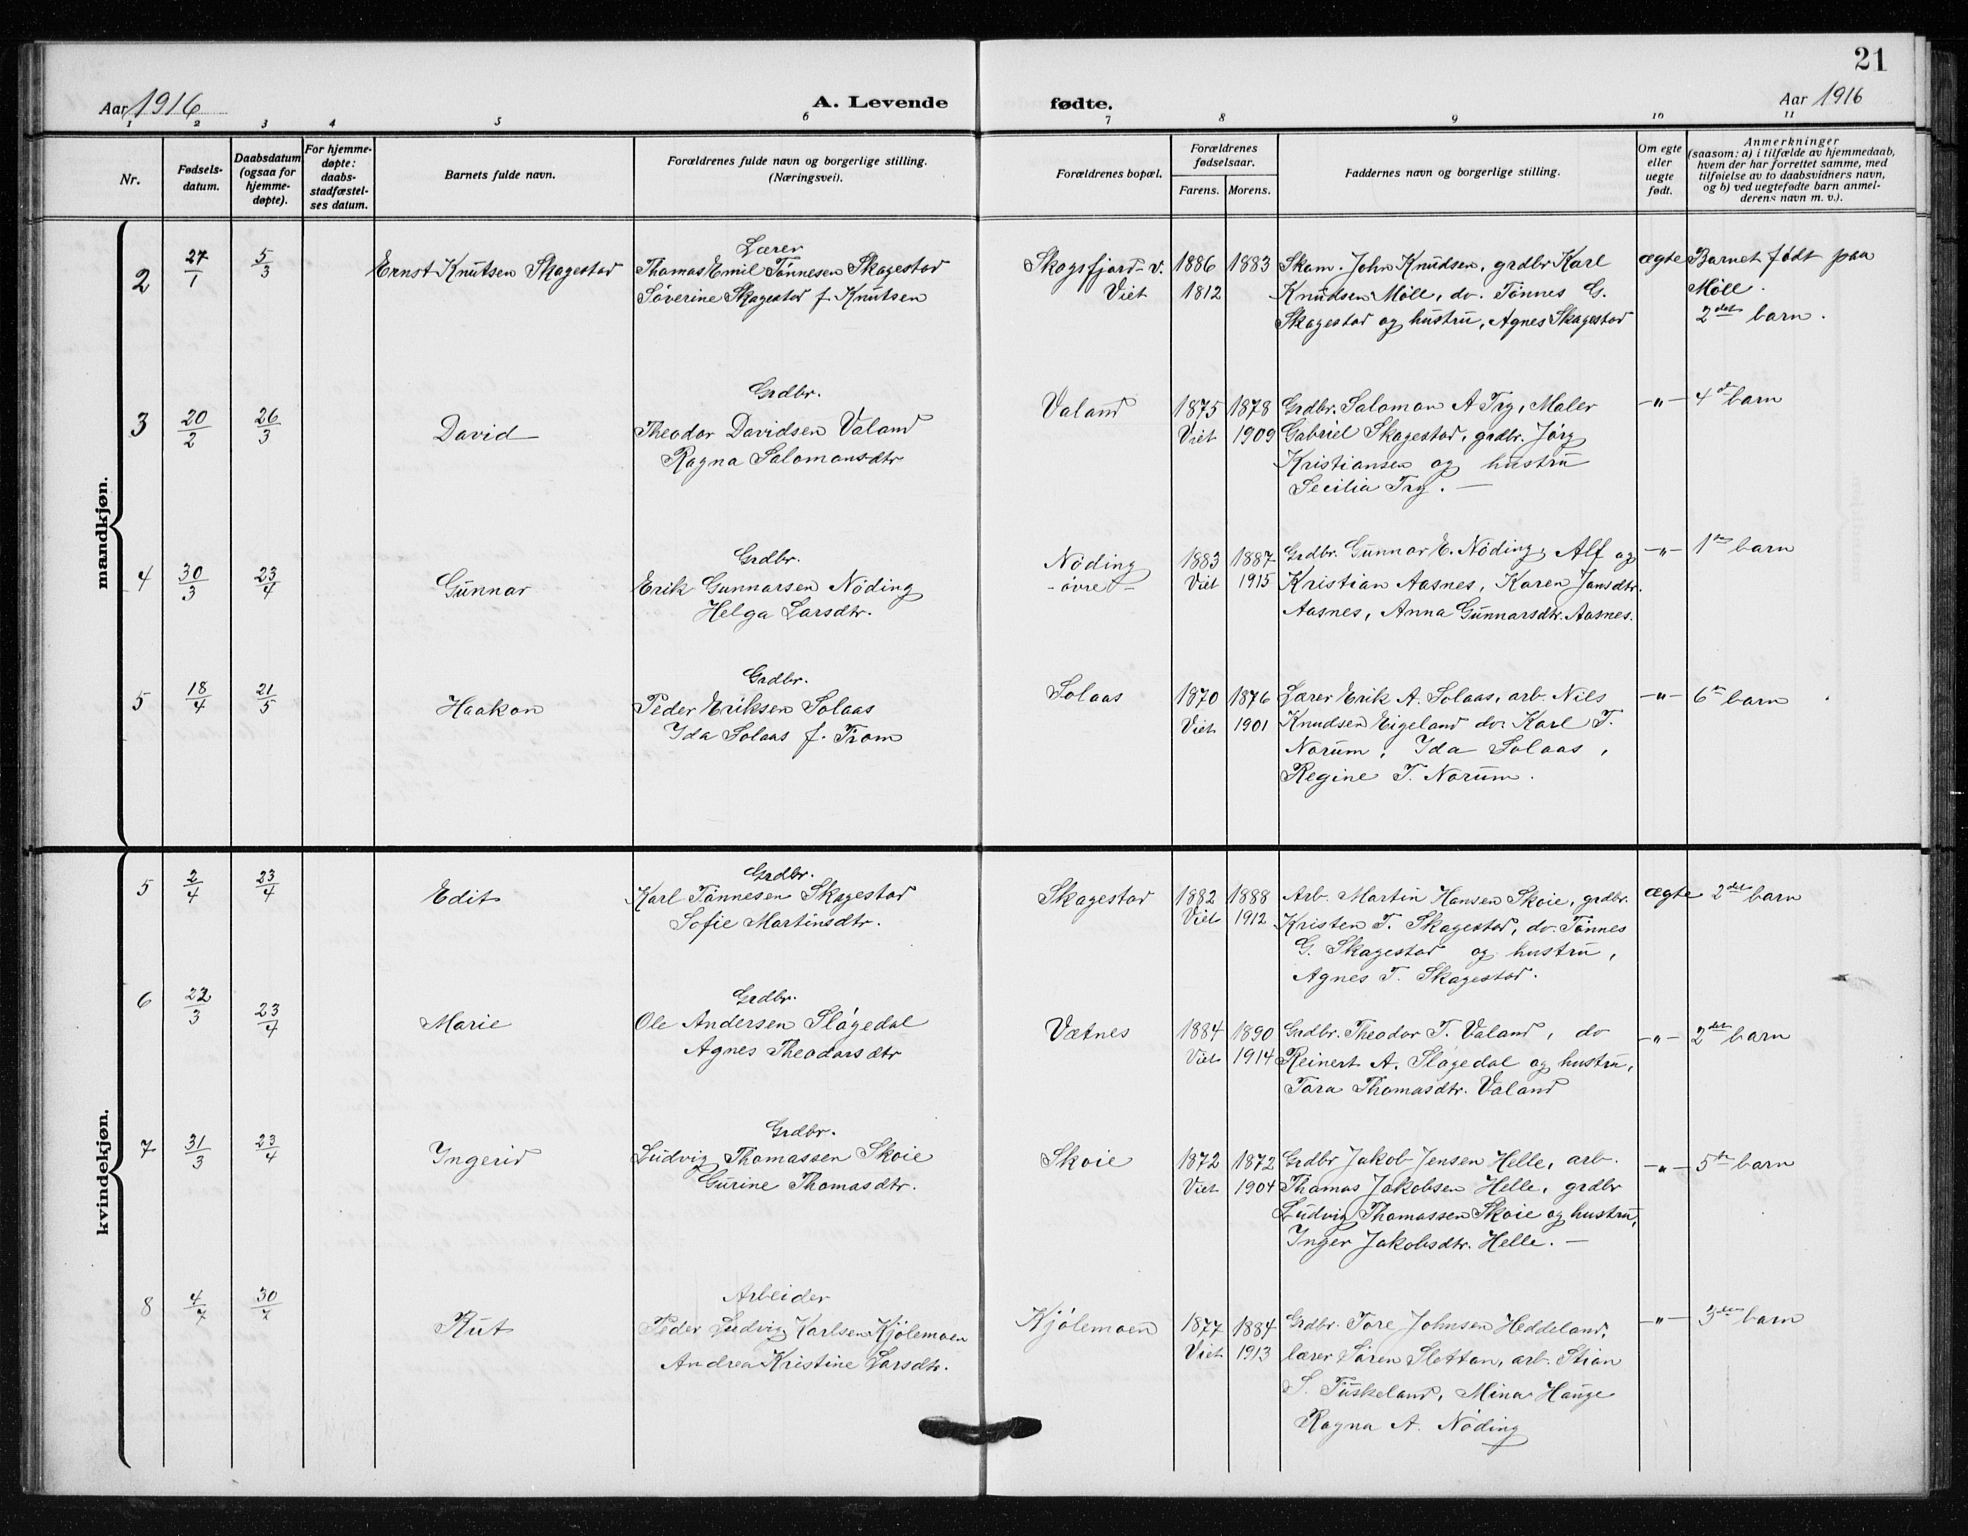 21
Aar 1916
A. Levende
fødte.
Aar 1916
1 2 3 4 5 6 7 8 9 10 11
Nr.
Fødsels-
datum.
Daabsdatum
(ogsaa for
hjemme-
døpte).
For hjemme-
døpte:
daabs-
stadfæstel-
ses datum.
Barnets fulde navn.
Forældrenes fulde navn og borgerlige stilling.
(Næringsvei).
Forældrenes bopæl.
Forældrenes
fødselsaar.
Farens. Morens.
Faddernes navn og borgerlige stilling.
Om egte
eller
uegte
født.
Anmerkninger
(saasom: a) i tilfælde av hjemmedaab,
hvem der har forrettet samme, med
tilføielse av to daabsvidners navn,
og b) ved uegtefødte barn anmel-
derens navn m. v.).
mandkjøn.
2
27/1
5/3
Ernst Knutsen Skagestad
Lærer
Thomas Emil Tønnesen Skagestad
Søverine Skagestad f. Knutsen
Skogsfjord-v.
1886 1883
Viet 1812
Skom. John Knudsen, grdbr Karl
Knudsen Møll, do. Tønnes G.
Skagestad og hustru, Agnes Skagestad
ægte
Barnet født paa
Møll.
2det barn.
3
20/2
26/3
David
Grdbr.
Theodor Davidsen Valand
Ragna Salomonsdtr
Valand
1875 1878
Viet 1909
Grdbr. Salomon A Try, Maler
Gabriel Skagestad, grdbr. Jörg
Kristiansen og hustru
Secilia Try. —
—"—
4de barn
4
30/3
23/4
Gunnar
Grdbr.
Erik Gunnarsen Nöding
Helga Larsdtr.
Nöding
- övre -
1883 1887
Viet 1915
Grdbr. Gunnar E. Nöding, Alf og
Kristian Aasnes, Karen Jansdtr.
Aasnes, Anna Gunnarsdtr. Aasnes.
—"—
1ste barn
5
18/4
21/5
Haakon
Grdbr.
Peder Eriksen Solaas
Ida Solaas f. Trom
Solaas
1870 1876
Viet 1901
Lærer Erik A. Solaas, arb. Nils
Knudsen Eigeland do. Karl T.
Norum, Ida Solaas,
Regine T. Norum.
—"—
6te barn
kvindekjøn.
5
2/4
23/4
Edit
Grdbr.
Karl Tønnesen Skagestad
Sofie Martinsdtr.
Skagestad
1882 1888
Viet 1912
Arb. Martin Hansen Skoie, grdbr.
Kristen T. Skagestad, do. Tönnes
G. Skagestad og hustru,
Agnes T. Skagestad.
ægte
2det barn
6
22/3
23/4
Marie
Grdbr.
Ole Andersen Slögedal
Agnes Theodorsdtr
Vætnes
1884 1890
Viet 1914
Grdbr. Theodor T. Valand, do
Reinert A. Slögedal og hustru,
Tara Thomasdtr. Valand
—"—
2det barn
7
31/3
23/4
Ingerid
Grdbr.
Ludvig Thomassen Skoie
Gurine Thomasdtr.
Skoie
1872 1872
Viet 1904
Grdbr Jakob Jensen Helle, arb.
Thomas Jakobsen Helle, grdbr
Ludvig Thomassen Skoie og hustru,
Inger Jakobsdtr. Helle. —
—"—
5te barn
8
4/7
30/7
Rut
Arbeider
Peder Ludvig Karlsen Kjölemoen
Andrea Kristine Larsdtr.
Kjölemoen
1877 1884
Viet 1913
Grdbr. Tore Johnsen Heddeland,
lærer Sören Slettan, arb. Stian
S. Tuskeland, Mina Hauge
Ragna A. Nöding
—"—
3die barn